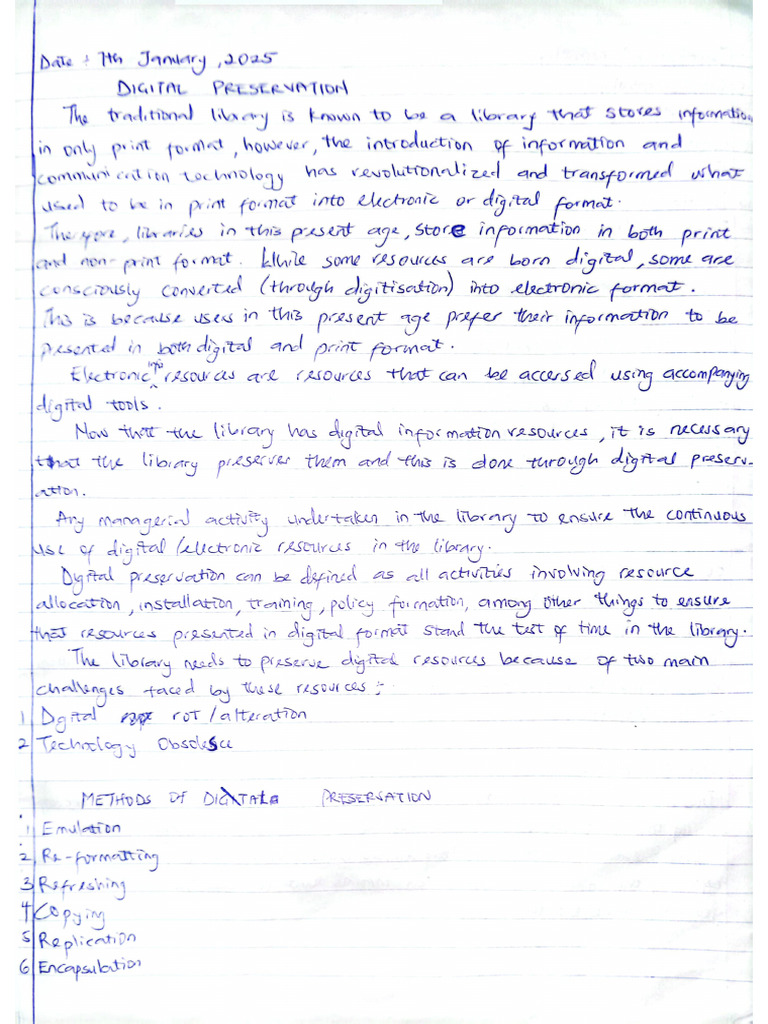 Date : 7th January, 2025
DIGITAL PRESERVATION
The traditional library is known to be a library that stores information
in only print format, however, the introduction of information and
communication technology has revolutionalized and transformed what
used to be in print format into electronic or digital format.
Therefore, libraries in this present age, store information in both print
and non-print format. While some resources are born digital, some are
consciously converted (through digitisation) into electronic format.
This is because users in this present age prefer their information to be
presented in both digital and print format.
Electronic info resources are resources that can be accersed using accompanying
digital tools.
Now that the library has digital information resources, it is necessary
that the library preserves them and this is done through digital preserv-
ation.
Any managerial activity undertaken in the library to ensure the continuous
use of digital/electronic resources in the library.
Digital preservation can be defined as all activities involving resource
allocation, installation, training, policy formation, among other things to ensure
that resources presented in digital format stand the test of time in the library.
The library needs to preserve digital resources because of two main
challenges faced by these resources :-
1 Digital rot/alteration
2 Technology Obsolesce
METHODS OF DIGITAL PRESERVATION
1 Emulation
2 Re-formatting
3 Refreshing
4 Copying
5 Replication
6 Encapsulation